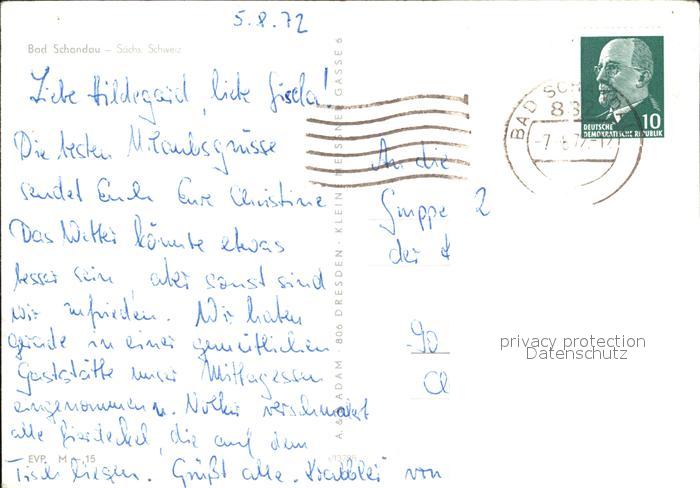 5.8.72
Bad Schandau – Sächs. Schweiz
Liebe Hildegard, liebe Gisela!
Die besten Urlaubsgrüsse
sendet Euch Eure Christine
Das Wetter könnte etwas
besser sein, aber sonst sind
wir zufrieden. Wir haben
gerade in einer gemütlichen
Gaststätte unser Mittagessen
eingenommen u. verschmiert
alle Bierdeckel, die auf dem
Tisch liegen. Grüßt alle. von
EVP M 15
A. & R. ADAM · 806 DRESDEN · KLEINE MEISSNER GASSE 6
BAD SCH
83
-7.8.72-17
DEUTSCHE
DEMOKRATISCHE REPUBLIK
10
An die
Gruppe 2
der
90
privacy protection
Datenschutz